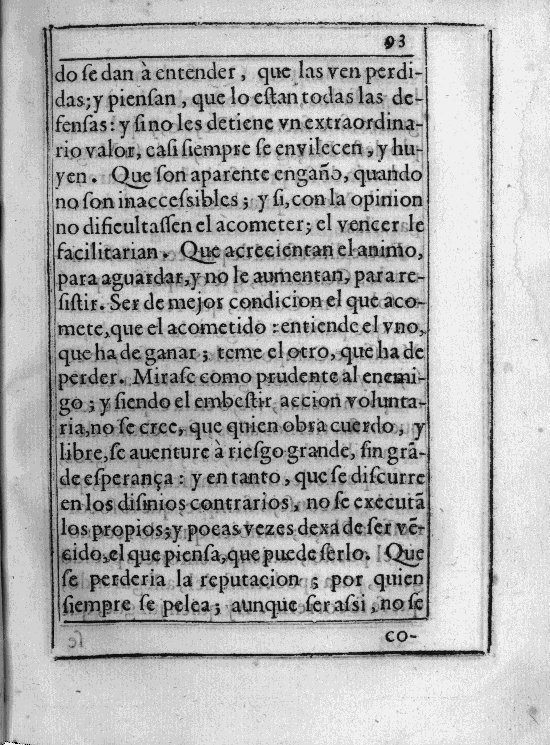 93
do ſe dan à entender, que las ven perdi-
das; y pienſan, que lo eſtan todas las de-
fenſas: y ſi no les detiene vn extraordina-
rio valor, caſi ſiempre ſe envilecen, y hu-
yen. Que ſon aparente engaño, quando
no ſon inacceſsibles; y ſi, con la opinion
no dificultaſſen el acometer; el vencer le
facilitarian. Que acrecientan el animo,
para aguardar, y no le aumentan, para re-
ſiſtir. Ser de mejor condicion el que aco-
mete, que el acometido: entiende el vno,
que ha de ganar; teme el otro, que ha de
perder. Miraſe como prudente al enemi-
go; y ſiendo el embeſtir accion volunta-
ria, no ſe cree, que quien obra cuerdo, y
libre, ſe auenture à rieſgo grande, ſin grā-
de eſperança: y en tanto, que ſe diſcurre
en los diſinios contrarios, no ſe executā
los propios; y pocas vezes dexa de ſer vē-
cido, el que pienſa, que puede ſerlo. Que
ſe perderia la reputacion; por quien
ſiempre ſe pelea; aunque ſer aſsi, no ſe
co-